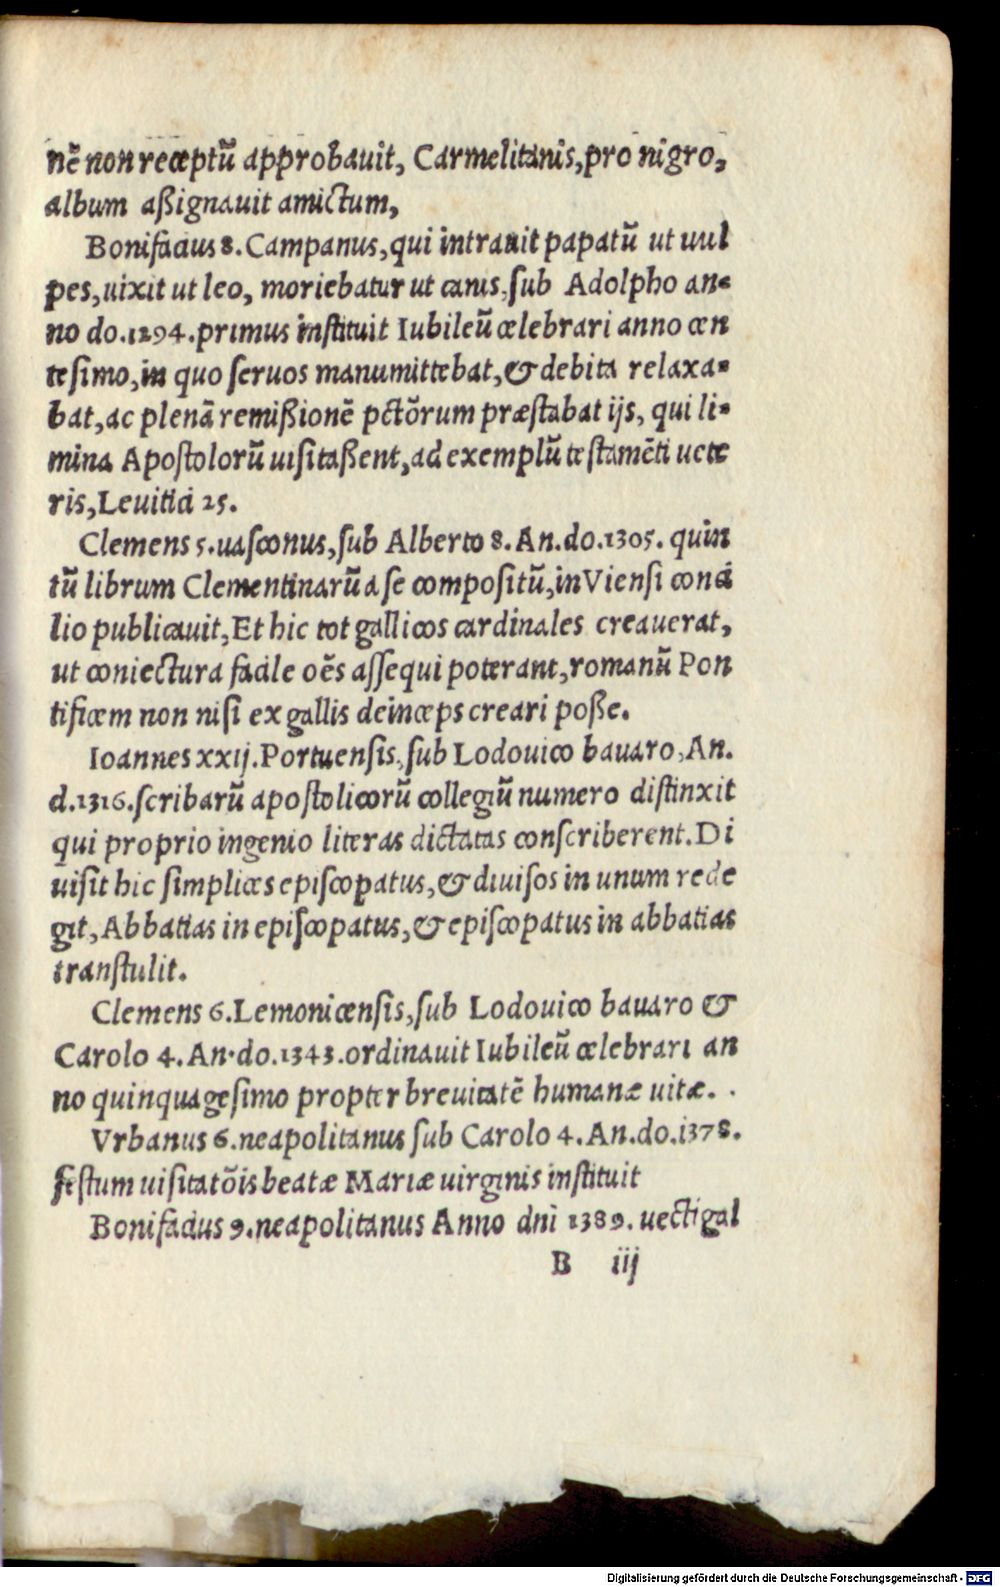 nē non receptũ approbauit, Carmelitanis, pro nigro,
album aßignauit amictum,
Bonifacius 8. Campanus, qui intrauit papatũ ut uul
pes, uixit ut leo, moriebatur ut canis, sub Adolpho an=
no do. 1294. primus instituit Iubileũ celebrari anno cen
tesimo, in quo seruos manumittebat, & debita relaxa=
bat, ac plenā remißionē pctōrum præstabat ijs, qui li=
mina Apostolorũ uisitaßent, ad exemplũ testamēti uete
ris, Leuitici 25.
Clemens 5. uasconus, sub Alberto 8. An. do. 1305. quin
tũ librum Clementinarũ a se compositũ, in Viensi conci
lio publicauit, Et hic tot gallicos cardinales creauerat,
ut coniectura facile oēs assequi poterant, romanũ Pon
tificem non nisi ex gallis deinceps creari poße.
Ioannes xxij. Portuensis, sub Lodouico bauaro, An.
d. 1316. scribarũ apostolicorũ collegiũ numero distinxit
qui proprio ingenio literas dictatas conscriberent. Di
uisit hic simplices episcopatus, & diuisos in unum rede
git, Abbatias in episcopatus, & episcopatus in abbatias
transtulit.
Clemens 6. Lemonicensis, sub Lodouico bauaro &
Carolo 4. An. do. 1343. ordinauit Iubileũ celebrari an
no quinquagesimo propter breuitatē humanæ uitæ.
Vrbanus 6. neapolitanus sub Carolo 4. An. do. 1378.
festum uisitatōis beatæ Mariæ uirginis instituit
Bonifacius 9. neapolitanus Anno dni 1389. uectigal
B iij
Digitalisierung gefördert durch die Deutsche Forschungsgemeinschaft - DFG